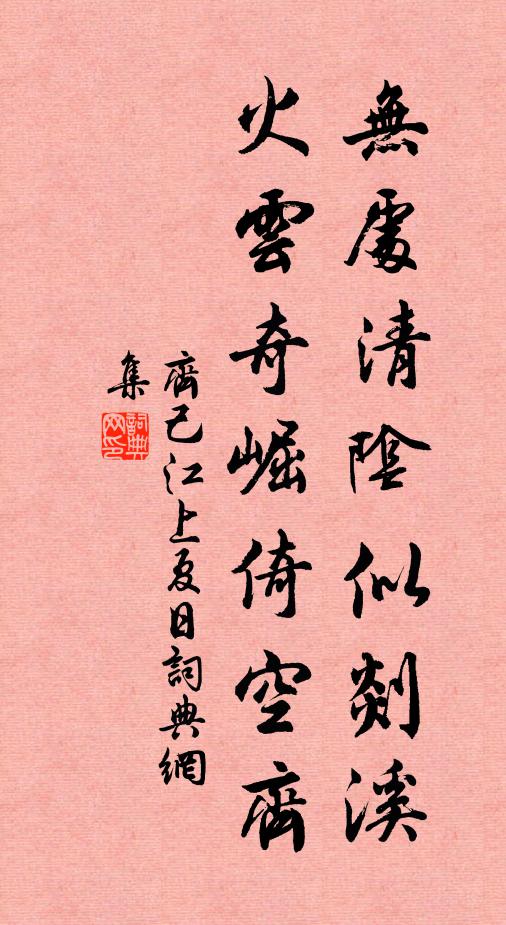 無處清陰似剡溪
火雲奇崛倚空齊
齊己江上夏日詞典網
集
詞典
网印